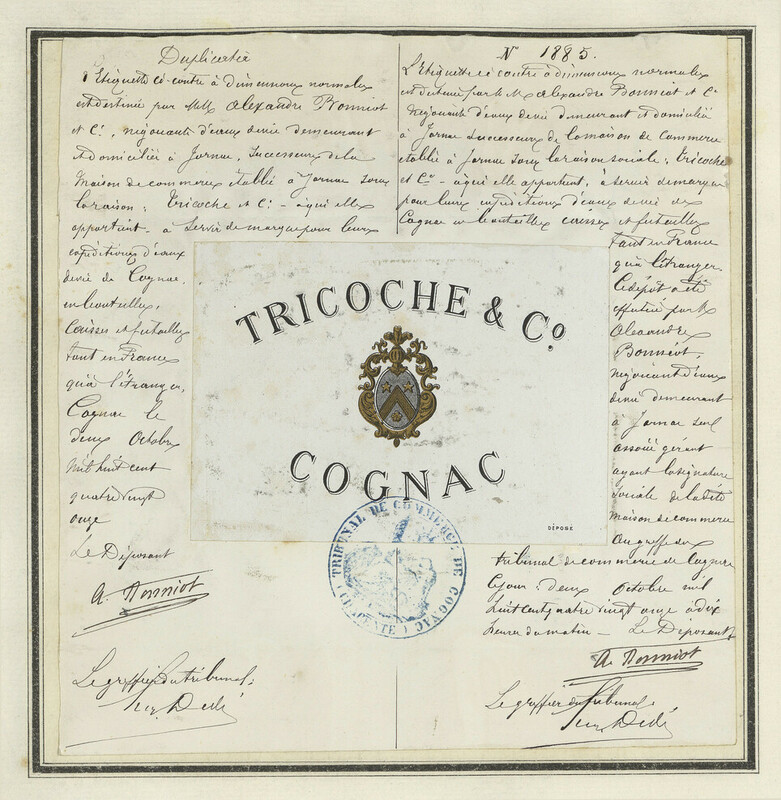 Duplicata
l'Etiquette ci-contre à dimensions normales
est destinée par MM. Alexandre Bonniot
et Cie, négociants d'eaux de vie demeurant
et domiciliés à Jarnac, successeurs de la
maison de commerce établie à Jarnac sous
la raison : Tricoche et Cie - à qui elle
appartient - à servir de marque pour leurs
expéditions d'eaux
de vie de Cognac,
en bouteilles,
caisses et futailles
tant en France
qu'à l'étranger,
Cognac le
deux Octobre
mil huit cent
quatre vingt
onze
Le Déposant
A. Bonniot
Le greffier du tribunal,
N° 1885.
L'Etiquette ci contre à dimensions normales
est destinée par MM Alexandre Bonniot et Cie
Négociants d'eaux de vie demeurant et domiciliés
à Jarnac successeurs de la maison de commerce
établie à Jarnac sous la raison sociale : Tricoche
et Co - à qui elle appartient, à servir de marque
pour leurs expéditions d'eaux de vie de
Cognac en bouteilles caisses et futailles
tant en France
qu'à l'étranger
Le dépôt a été
effectué par M
Alexandre
Bonniot,
négociant d'eaux
de vie demeurant
à Jarnac seul
associé gérant
ayant la signature
sociale de la dite
maison de commerce
au greffe du
tribunal de commerce de Cognac
Ce jour : deux Octobre mil
huit cent quatre vingt onze à dix
heures du matin - Le Déposant
A. Bonniot
Le greffier du tribunal
TRICOCHE & Co
COGNAC
DÉPOSÉ
TRIBUNAL DE COMMERCE DE COGNAC
(CHARENTE)